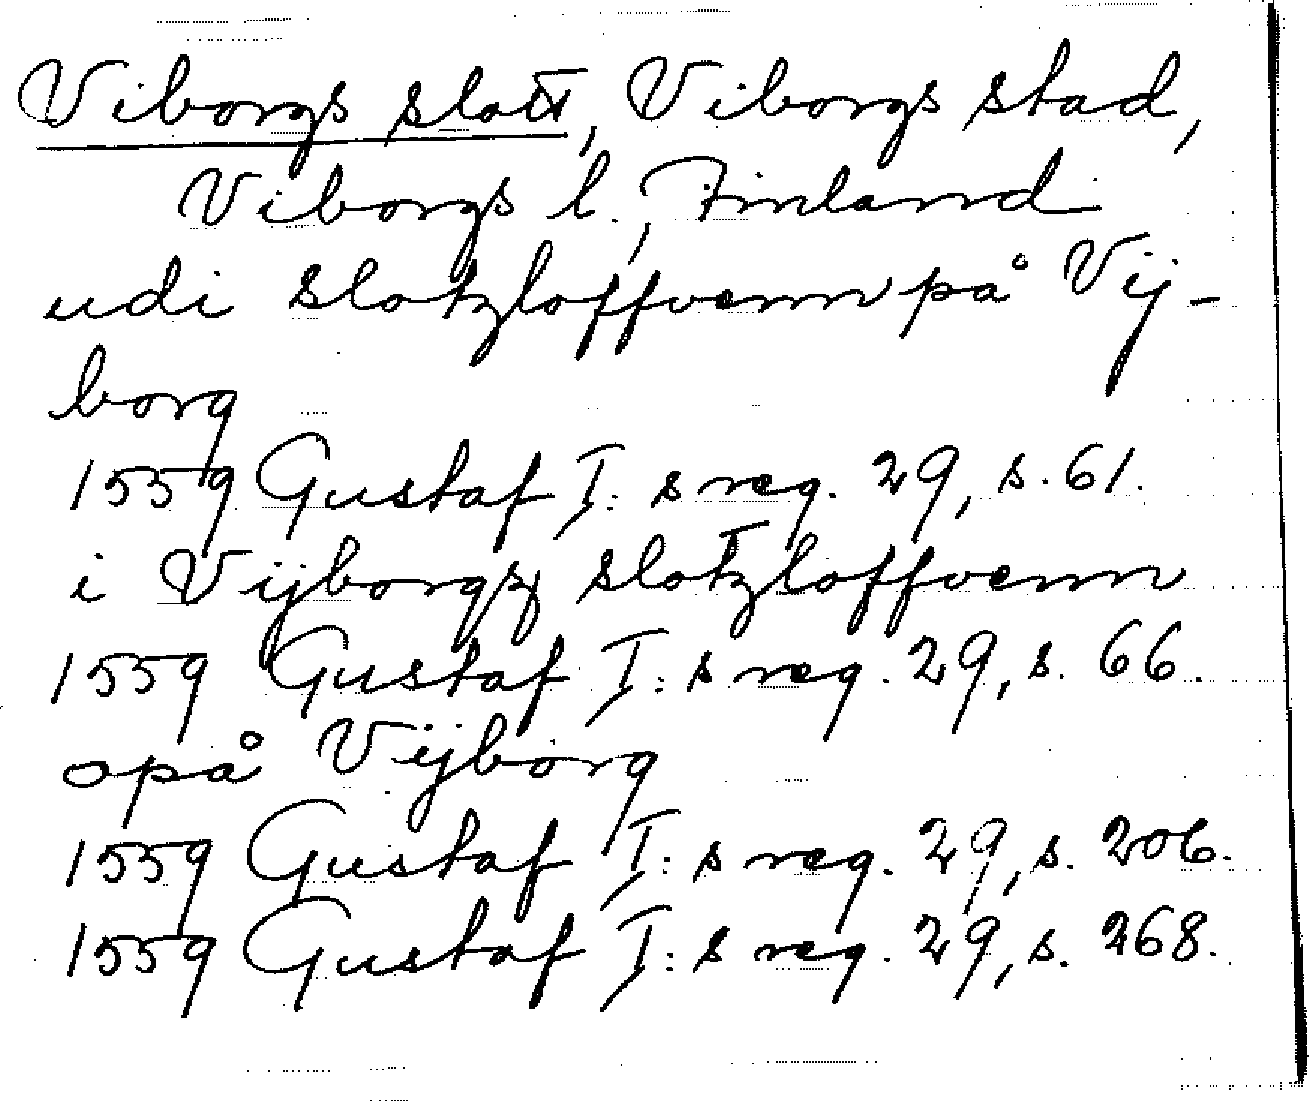 Viborgs slott, Viborgs stad,
Viborgs l., Finland
udi Slotzloffvenn på Vij-
borg
1559 Gustaf I:s reg. 29, s. 61.
i Vijborgz slotzloffvenn
1559 Gustaf I:s reg. 29, s. 66.
opå Vijborg
1559 Gustaf I:s reg. 29, s. 206.
1559 Gustaf I:s reg. 29, s. 268.